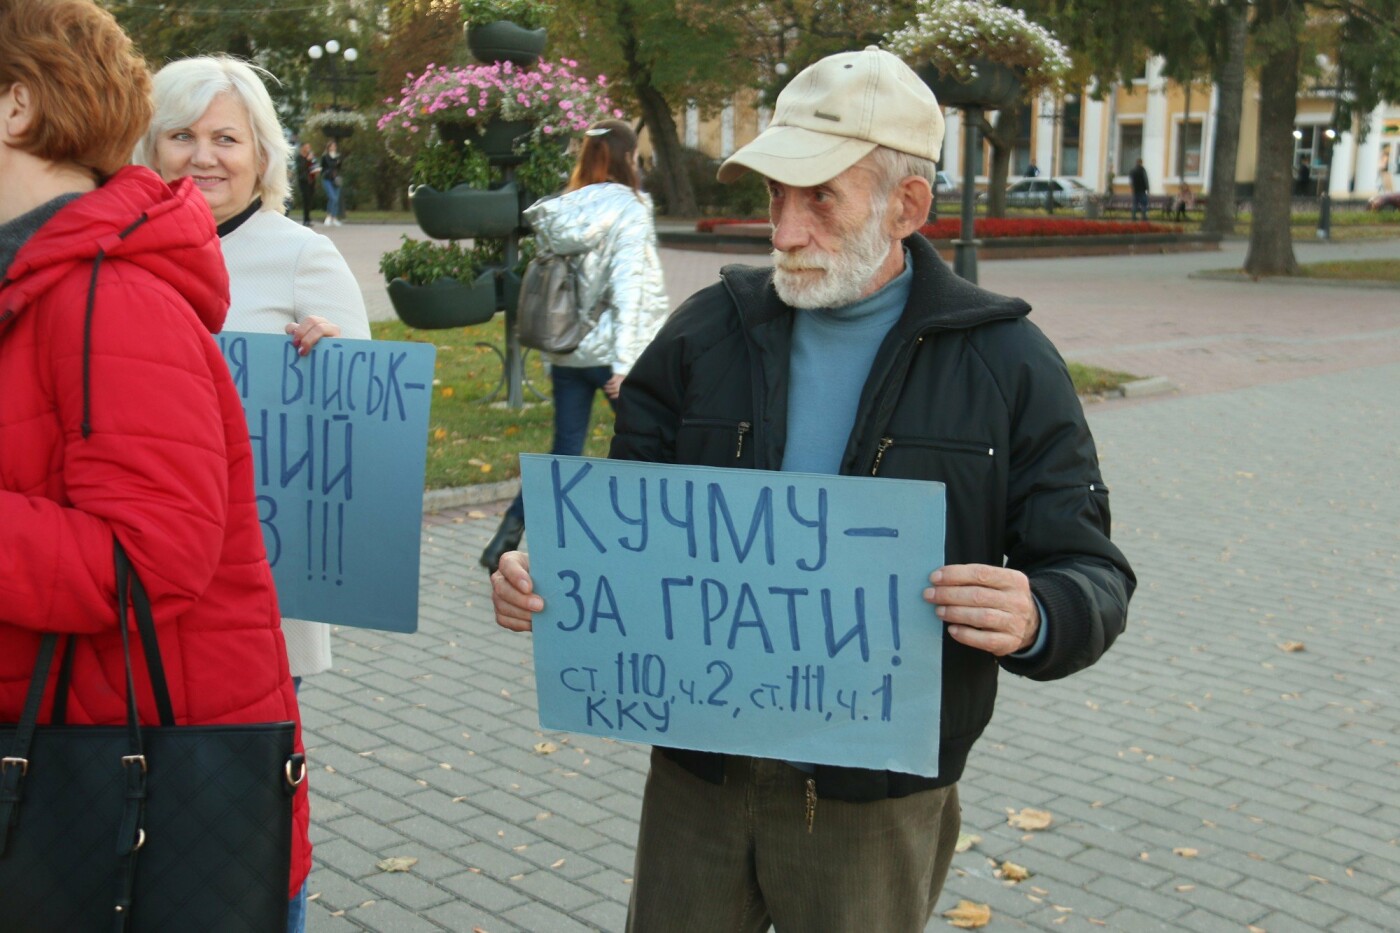 ВІЙСЬК-
!!!
КУЧМУ —
ЗА ҐРАТИ!
ст. 110, ч. 2, ст. 111, ч. 1
ККУ